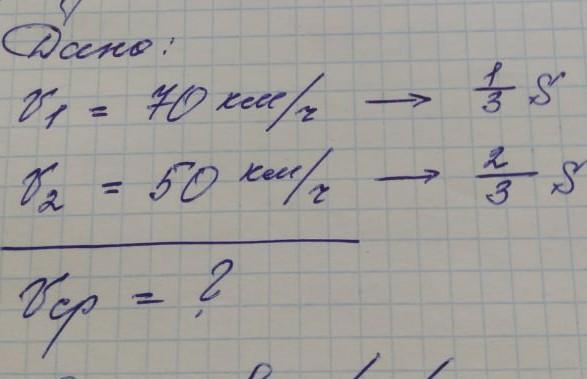 Дано:
v₁ = 70 км/ч → 1/3 S
v₂ = 50 км/ч → 2/3 S
vср = ?